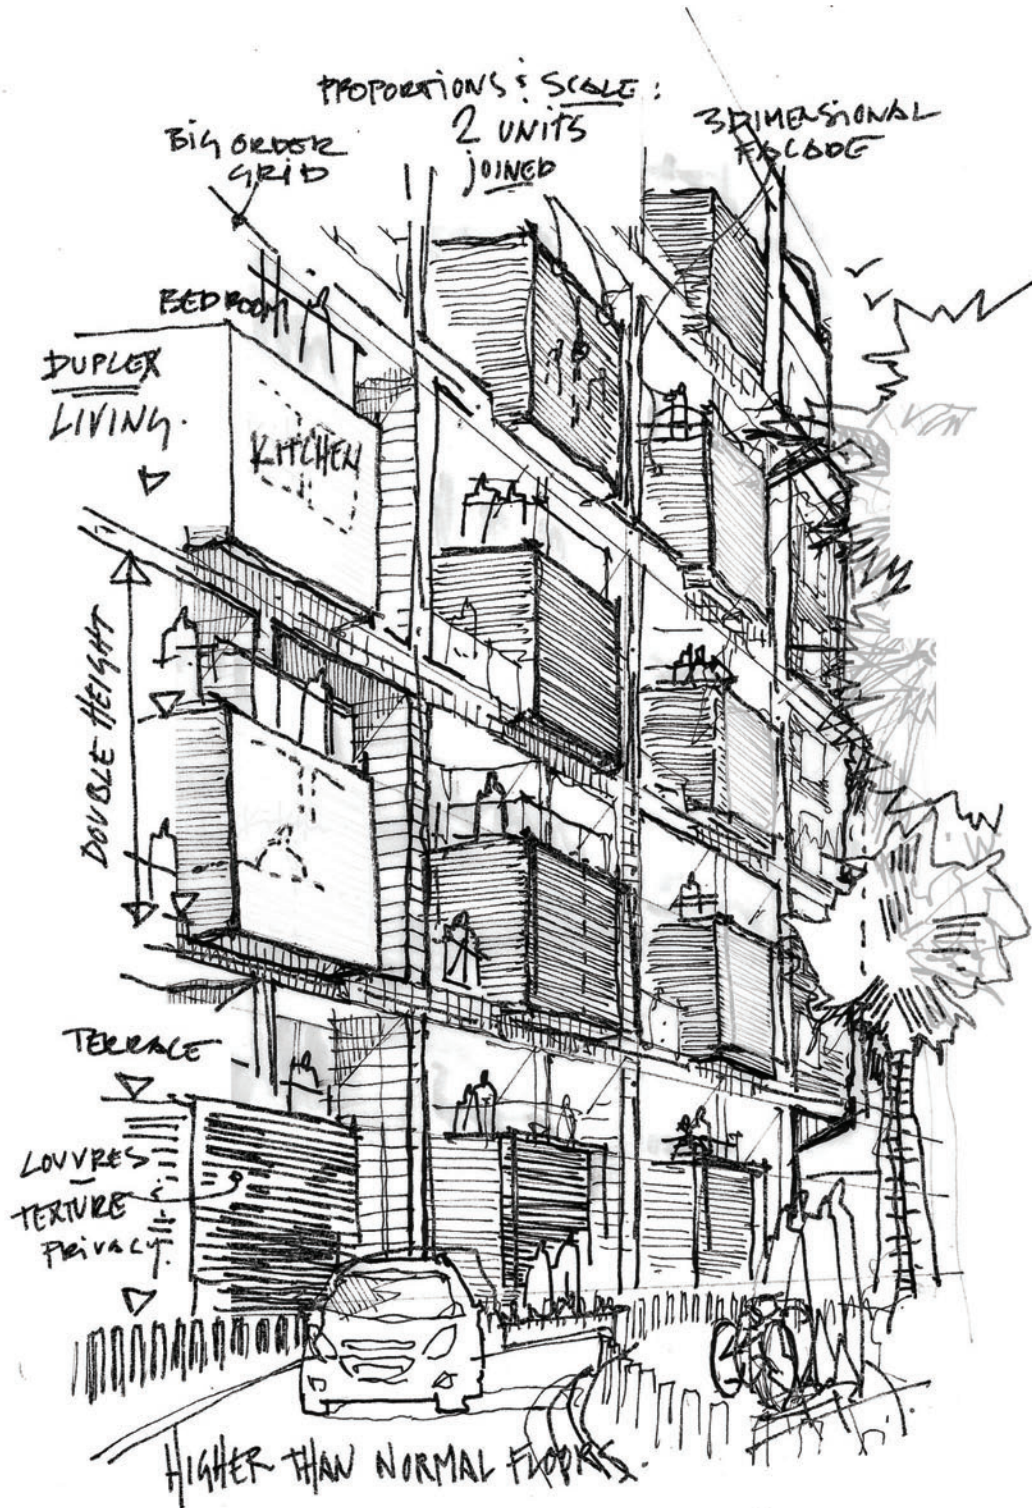 PROPORTIONS & SCALE:
2 UNITS
JOINED
BIG ORDER
GRID
3 DIMENSIONAL
FACADE
BEDROOM
DUPLEX
LIVING.
KITCHEN
DOUBLE HEIGHT
TERRACE
LOUVRES
TEXTURE &
PRIVACY.
HIGHER THAN NORMAL FLOORS.